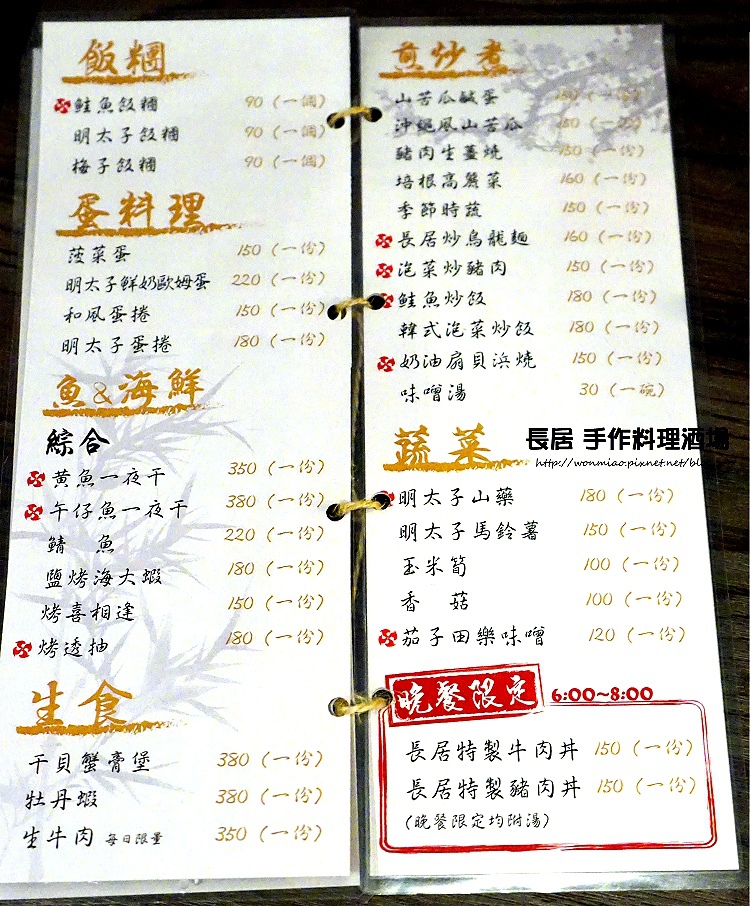 飯糰
鮭魚飯糰 90 (一個)
明太子飯糰 90 (一個)
梅子飯糰 90 (一個)
蛋料理
菠菜蛋 150 (一份)
明太子鮮奶歐姆蛋 220 (一份)
和風蛋捲 150 (一份)
明太子蛋捲 180 (一份)
魚&海鮮
綜合
黃魚一夜干 350 (一份)
午仔魚一夜干 380 (一份)
鯖 魚 220 (一份)
鹽烤海大蝦 180 (一份)
烤喜相逢 150 (一份)
烤透抽 180 (一份)
生食
干貝蟹膏堡 380 (一份)
牡丹蝦 380 (一份)
生牛肉 每日限量 350 (一份)
煎炒煮
山苦瓜鹹蛋 (一份)
沖繩風山苦瓜 (一份)
豬肉生薑燒 150 (一份)
培根高麗菜 160 (一份)
季節時蔬 150 (一份)
長居炒烏龍麵 160 (一份)
泡菜炒豬肉 150 (一份)
鮭魚炒飯 180 (一份)
韓式泡菜炒飯 180 (一份)
奶油扇貝浜燒 150 (一份)
味噌湯 30 (一碗)
蔬菜
長居 手作料理酒場
http://wonmiao.pixnet.net/bl
明太子山藥 180 (一份)
明太子馬鈴薯 150 (一份)
玉米筍 100 (一份)
香 菇 100 (一份)
茄子田樂味噌 120 (一份)
晚餐限定 6:00~8:00
長居特製牛肉丼 150 (一份)
長居特製豬肉丼 150 (一份)
(晚餐限定均附湯)